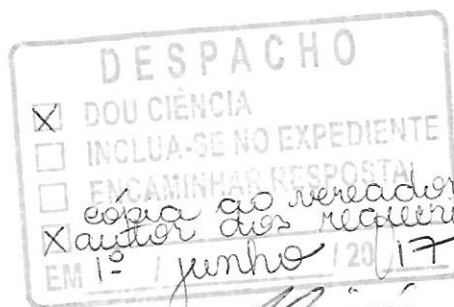 DESPACHO
X DOU CIÊNCIA
INCLUA-SE NO EXPEDIENTE
ENCAMINHAR RESPOSTA
cópia ao vereador
X autor dos
EM 1º / junho / 20 17